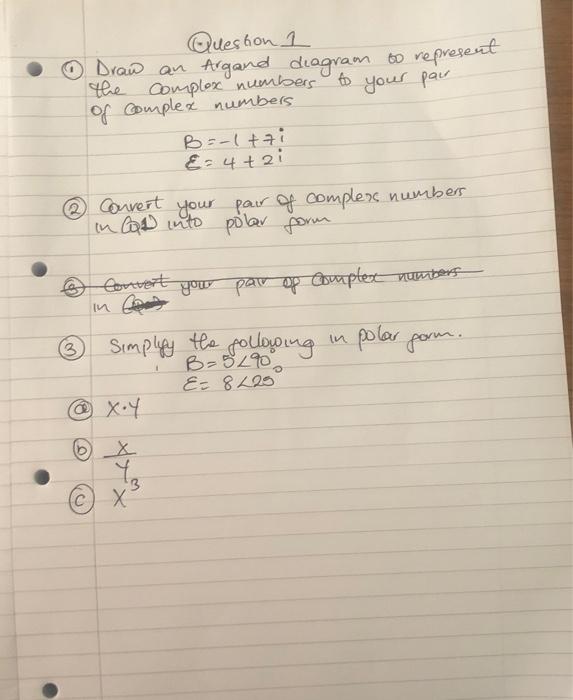 Question 1
① Draw an Argand diagram to represent
the complex numbers to your pair
of complex numbers
B = -1 + 7i
Ɛ = 4 + 2i
② Convert your pair of complex numbers
in (Q1) into polar form
③ Convert your pair of complex numbers
in
③ Simplify the following in polar form.
B = 5∠90°
Ɛ = 8∠25°
ⓐ X·Y
ⓑ X
Y
ⓒ X³